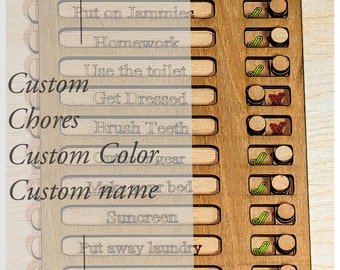 Put on Jammies
Homework
Use the toilet
Get Dressed
Brush Teeth
gear
bed
Suncreen
Put away laundry
Custom
Chores
Custom Color
Custom name